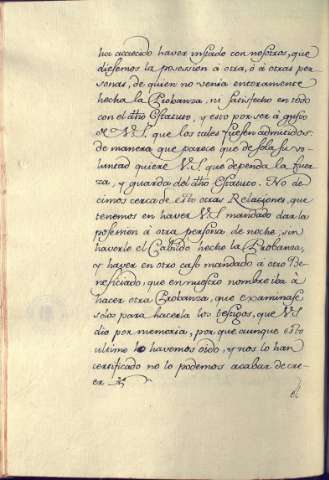 ha acaecido haver instado con nosotros, que
diesemos la posession á otra, ó á otras per-
sonas, de quien no venia enteramente
hecha la Probanza, ni satisfecho en todo
con el dho Estatuto, y esto por ser á gusto
de V.S. que los tales fuesen admitidos:
de manera que parece que de sola su vo-
luntad quiere V.S. que dependa la fuer-
za, y guarda del dho Estatuto. No de-
cimos cerca de esto otras Relaciones, que
tenemos en haver V.S. mandado dar la
possession á otra persona de noche, sin
haverle el Cabildo hecho la Probanza,
y haver en otro caso mandado á otro Be-
neficiado, que en nuestro nombre iba á
hacer otra Probanza, que examinase
solos para hacerla los testigos, que V.S.
dio por memoria, por que aunque esto
ultimo lo havemos oido, y nos lo han
certificado no lo podemos acabar de cre-
er.
el